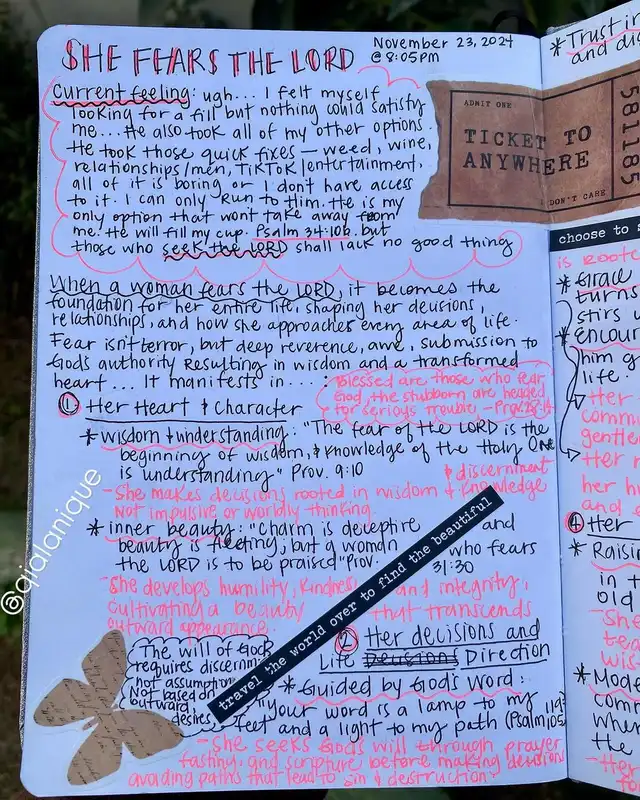 SHE FEARS THE LORD
November 23, 2024
@ 8:05PM
Current feeling: ugh... I felt myself
looking for a fill but nothing could satisfy
me... He also took all of my other options.
He took those quick fixes — weed, wine,
relationships/men, TikTok/entertainment,
all of it is boring or I don't have access
to it. I can only run to Him. He is my
only option that won't take away from
me. He will fill my cup. Psalm 34:10b. but
those who seek the LORD shall lack no good thing
When a woman fears the LORD, it becomes the
foundation for her entire life, shaping her decisions,
relationships, and how she approaches every area of life.
Fear isn't terror, but deep reverence, awe, submission to
God's authority resulting in wisdom and a transformed
heart... It manifests in....:
Blessed are those who fear
God, the stubborn are headed
for serious trouble. - Prov. 28:14
① Her Heart & Character
* wisdom & understanding: "The fear of the LORD is the
beginning of wisdom, & knowledge of the Holy One
is understanding." Prov. 9:10
& discernment
- She makes decisions rooted in wisdom & knowledge
Not impulsive or worldly thinking.
* inner beauty: "Charm is deceptive and
beauty is fleeting; but a woman who fears
the LORD is to be praised" Prov. 31:30
- She develops humility, kindness, and integrity,
cultivating a beauty that transcends
outward appearance.
travel the world over to find the beautiful
The will of God
requires discernm
not assumption
Not based on
outward
desires
② Her decisions and
Life Decisions Direction
* Guided by God's Word:
"Your word is a lamp to my
feet and a light to my path (Psalm 119:105)
- She seeks Gods will through prayer
fasting, and scripture before making decisions
avoiding paths that lead to sin & destruction.
@qialanique
* Trust in
and di
ADMIT ONE
TICKET TO
ANYWHERE
I DON'T CARE
581185
choose to s
is roote
* Grace
turns
stirs u
* Encour
him g
life.
Her
commu
gentle
Her r
her hu
and e
④ Her
* Raisi
in t
old
- She
tea
wis
* Mode
comm
when
the
- Her